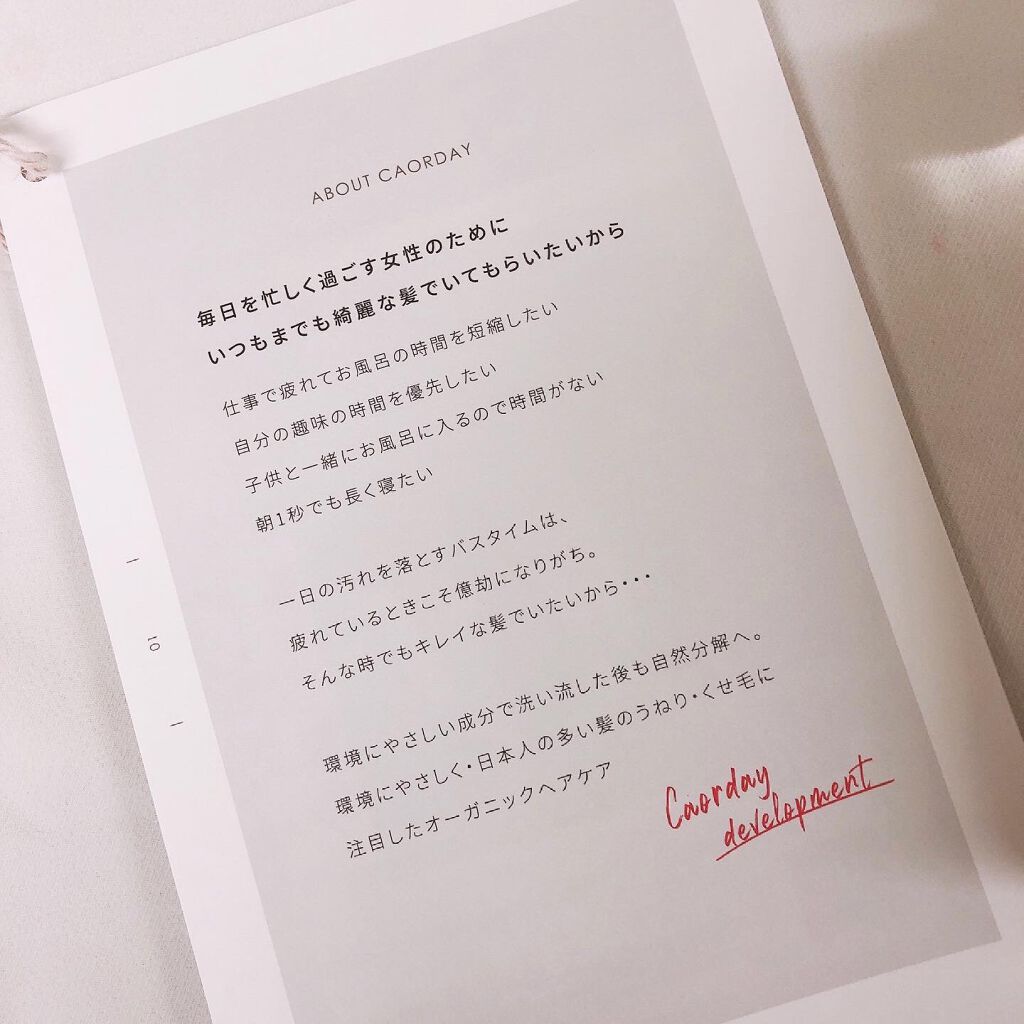 ABOUT CAORDAY
毎日を忙しく過ごす女性のために
いつもまでも綺麗な髪でいてもらいたいから
仕事で疲れてお風呂の時間を短縮したい
自分の趣味の時間を優先したい
子供と一緒にお風呂に入るので時間がない
朝1秒でも長く寝たい
一日の汚れを落とすバスタイムは、
疲れているときこそ億劫になりがち。
そんな時でもキレイな髪でいたいから・・・
環境にやさしい成分で洗い流した後も自然分解へ。
環境にやさしく・日本人の多い髪のうねり・くせ毛に
注目したオーガニックヘアケア
Caorday
development
10